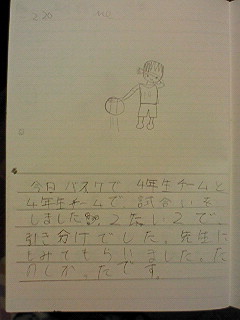 2.20
今日バスケで、4年生チームと
4年生チームで試合いを
しました。2たい2で、
引き分けでした。先生に
もらいました。た
のしかったです。